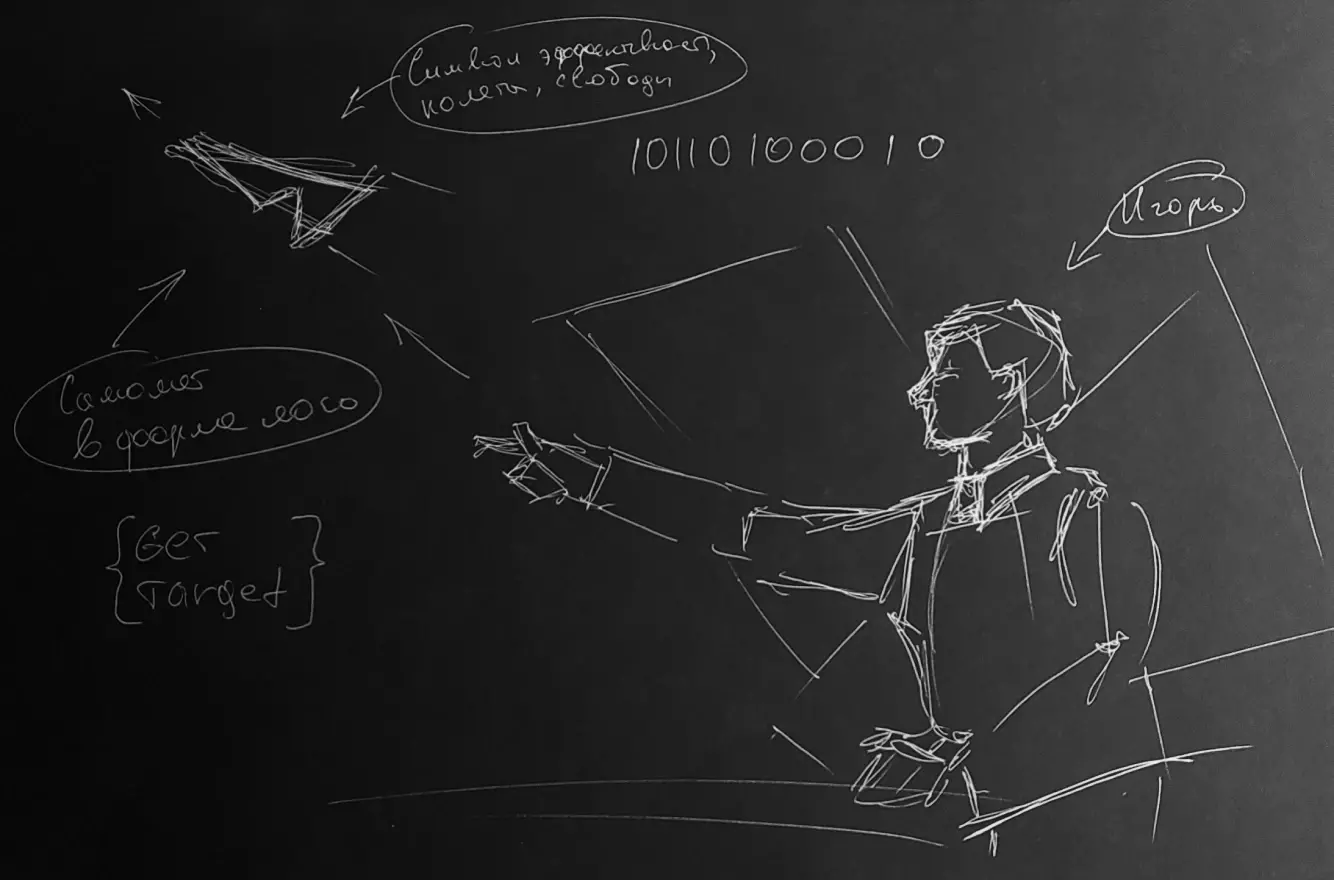 Символ эффективности,
полета, свободы
10110100010
Игорь
Самолет
в форме лого
{Get
Target}